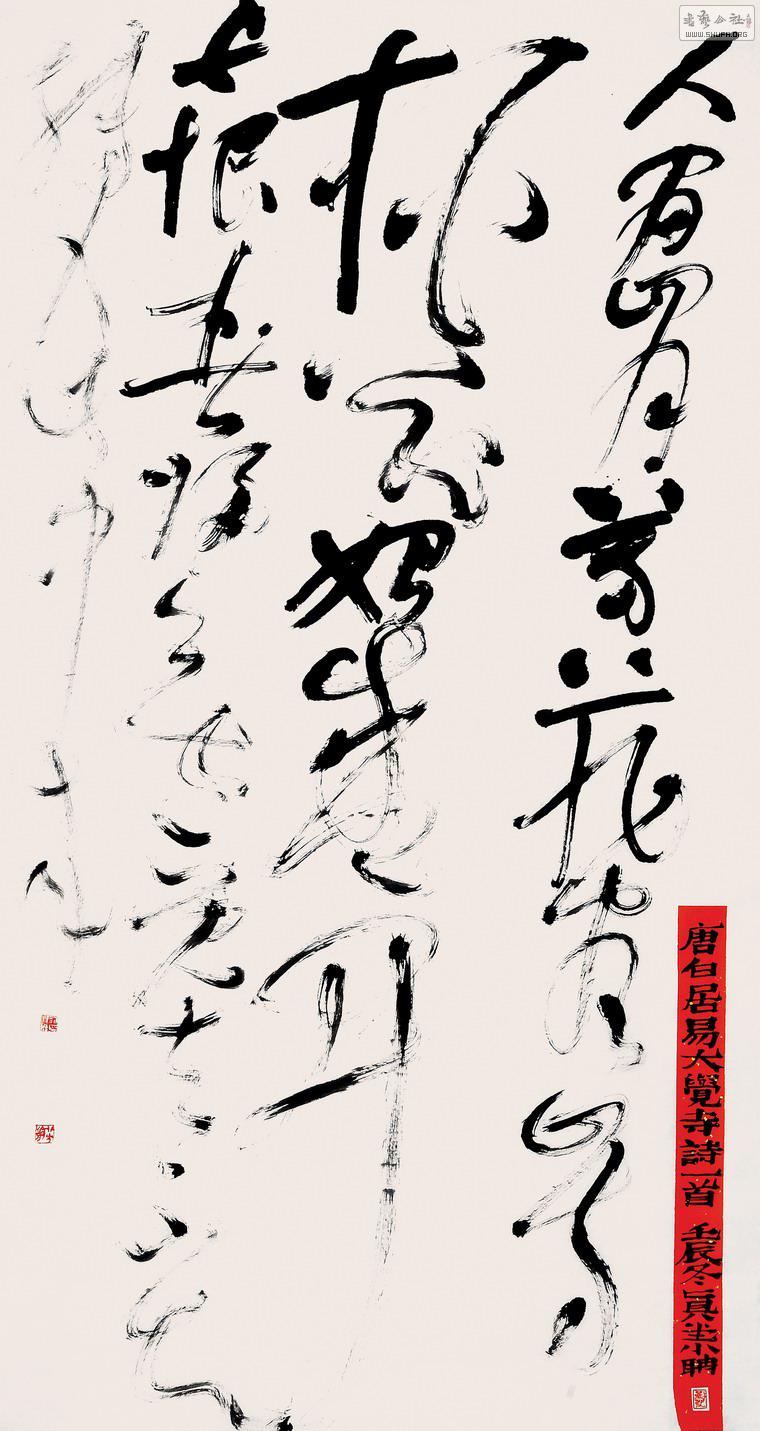 書藝公社
WWW.SHUFA.ORG
人間四月芳菲盡山寺
桃花始盛開
長恨春歸無覓處不知
轉入此中來
唐白居易大覺寺詩一首 壬辰冬